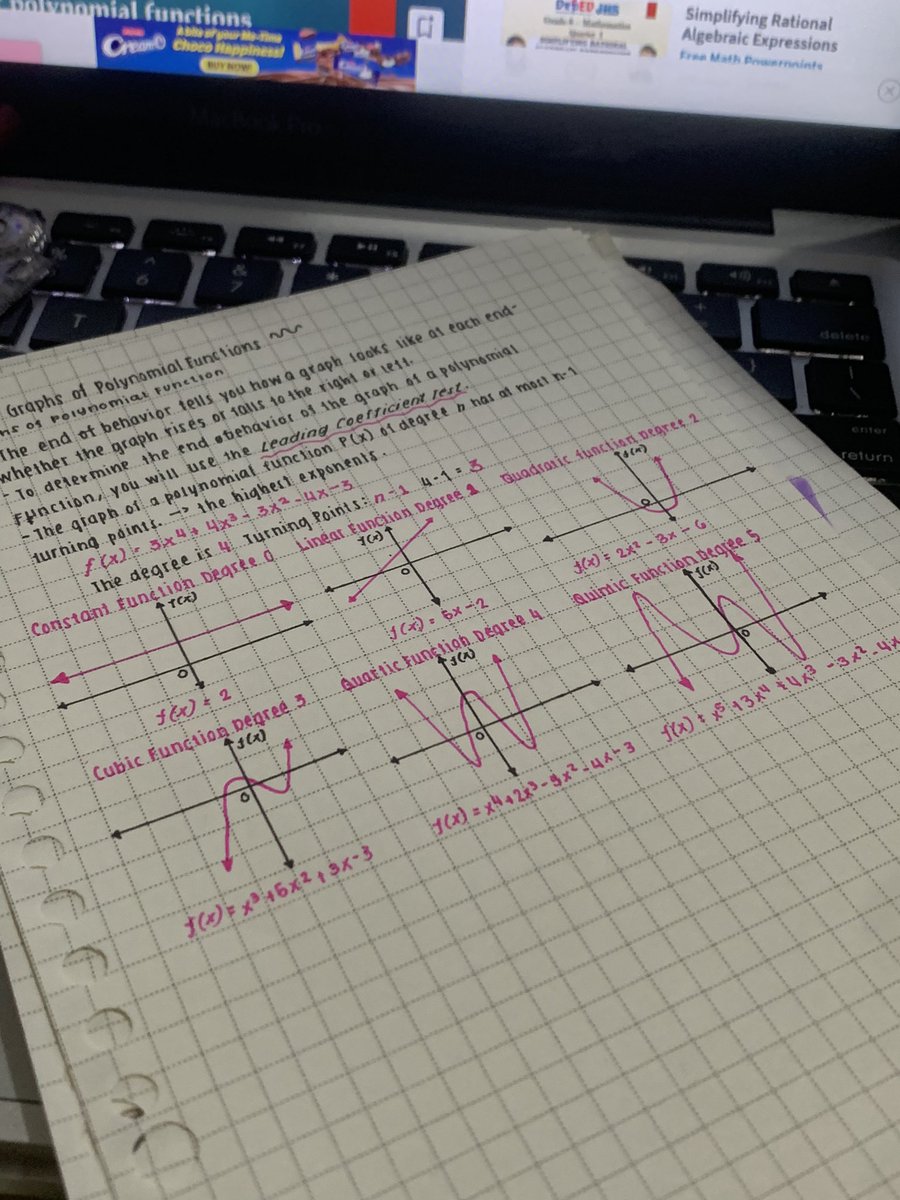 polynomial functions
Cream-O
A bite of your Me-Time
Choco Happiness!
BUY NOW!
DepED JHS
Simplifying Rational
Algebraic Expressions
Free Math Powerpoints
MacBook Pro
6
&
7
T
delete
enter
return
Graphs of Polynomial Functions
ns of Polynomial Function
The end of behavior tells you how a graph looks like at each end-
whether the graph rises or falls to the right or left.
- To determine the end behavior of the graph of a polynomial
function, you will use the Leading Coefficient Test.
- The graph of a polynomial function P(x) of degree n has at most n-1
turning points. → the highest exponents.
f(x) = 3x4 + 4x3 - 3x2 - 4x - 3
The degree is 4. Turning Points: n-1 4-1 = 3
Constant Function Degree 0
f(x)
0
f(x) = 2
Linear Function Degree 1
f(x)
0
f(x) = 5x-2
Quadratic function Degree 2
f(x)
0
f(x) = 2x2 - 3x - 6
Cubic Function Degree 3
f(x)
0
f(x) = x3 + 5x2 + 3x-3
Quartic Function Degree 4
f(x)
0
f(x) = x4+2x3-9x2-4x+3
Quintic Function Degree 5
f(x)
0
f(x) = x5 + 3x4 + 4x3 - 3x2 - 4x